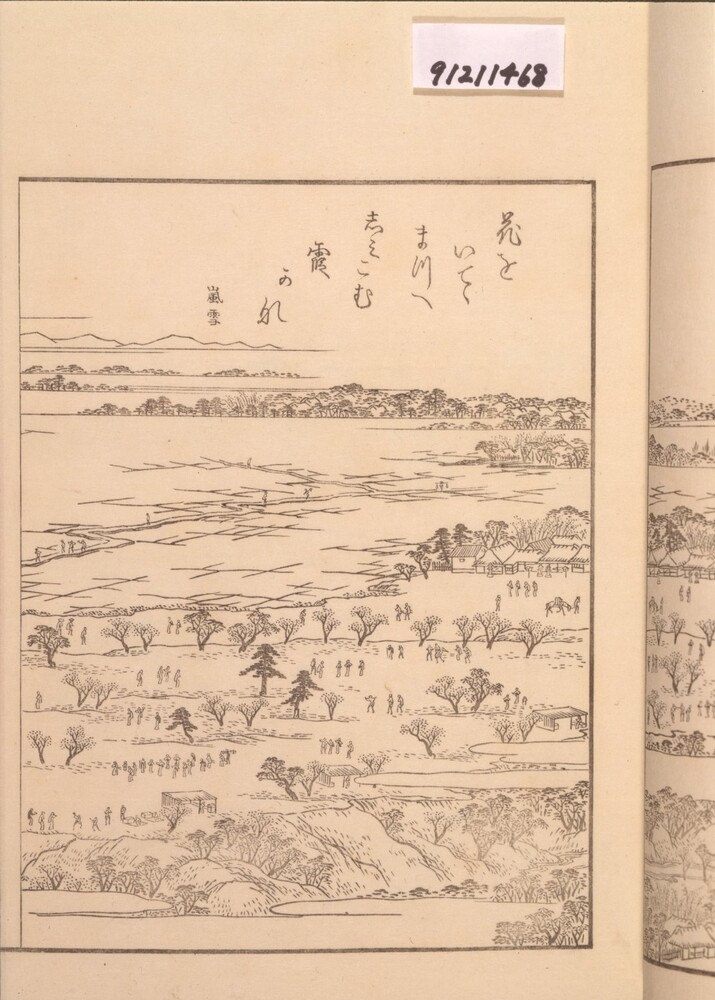 91211468
花を
いてゝ
まつへ
志みこむ
霞
かな
嵐雪